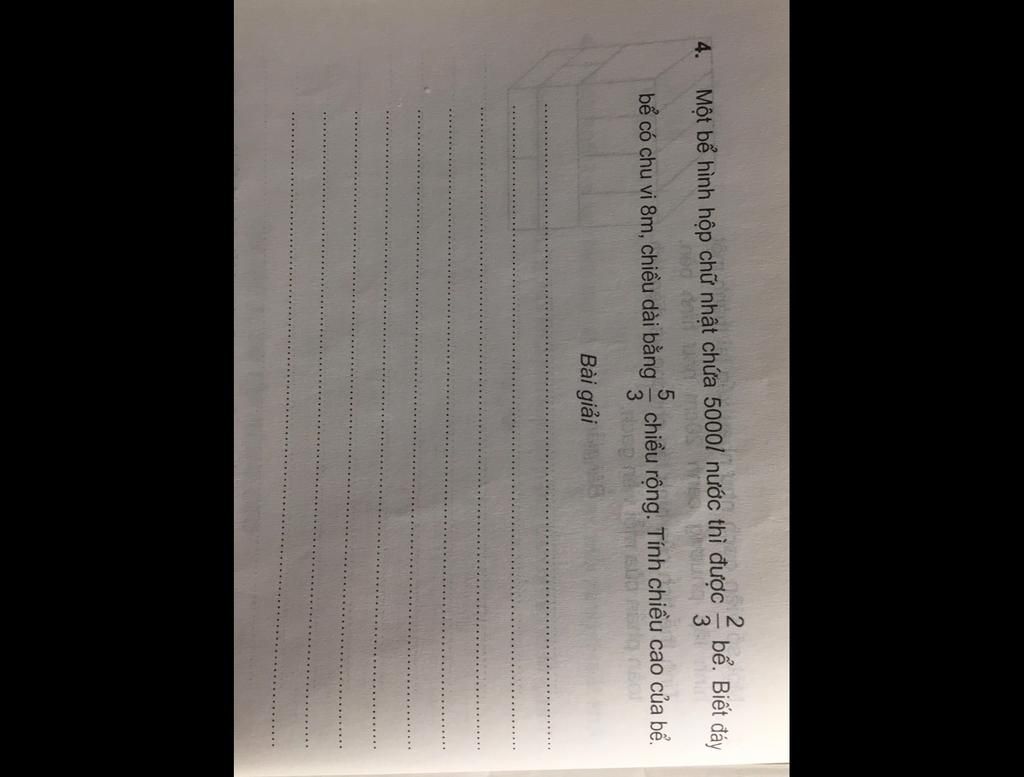 4. Một bể hình hộp chữ nhật chứa 5000l nước thì được 2/3 bể. Biết đáy
bể có chu vi 8m, chiều dài bằng 5/3 chiều rộng. Tính chiều cao của bể.
Bài giải